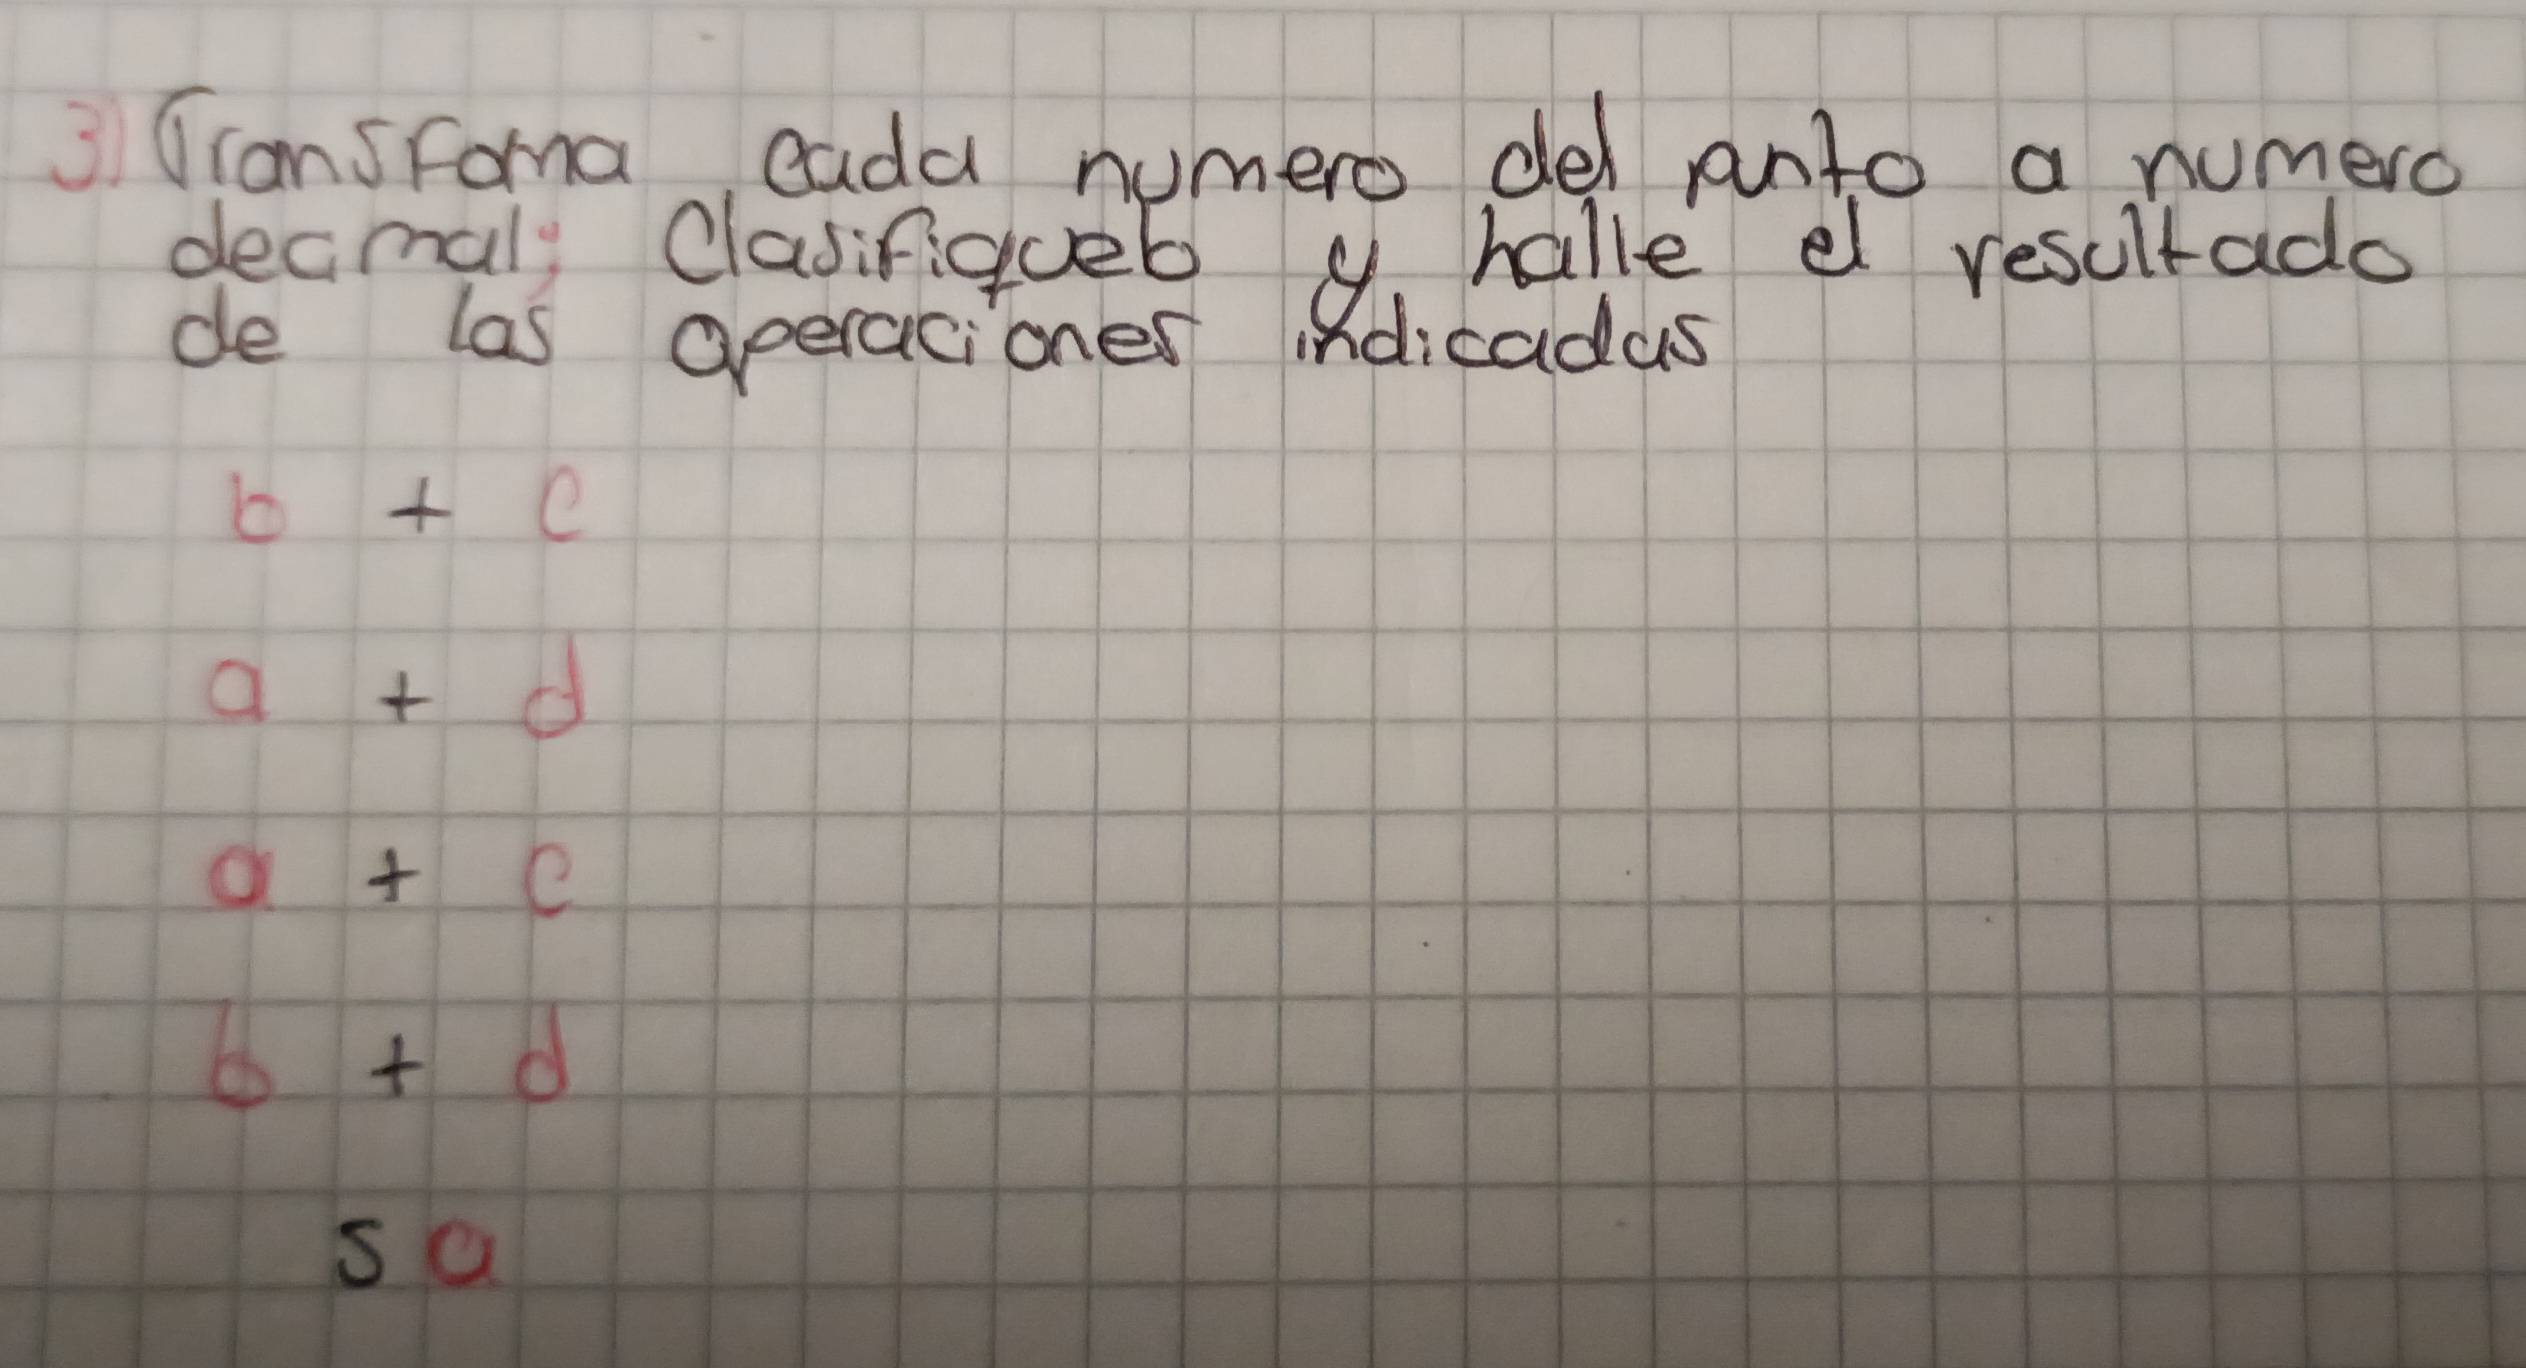 3) Transfoma cada numero del punto a numero
decimal; Clasifiqueb y halle el resultado
de las operaciones indicadas
b + c
a + d
a + c
b + d
5 a